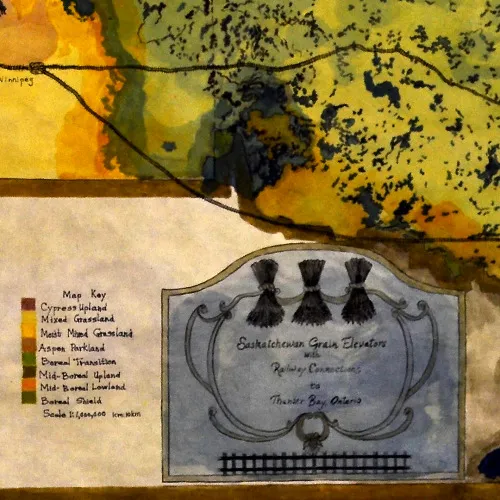 Winnipeg
Map Key
Cypress Upland
Mixed Grassland
Moist Mixed Grassland
Aspen Parkland
Boreal Transition
Mid-Boreal Upland
Mid-Boreal Lowland
Boreal Shield
Scale 1:1,000,000 1cm:10km
Saskatchewan Grain Elevators
with
Railway Connections
to
Thunder Bay, Ontario